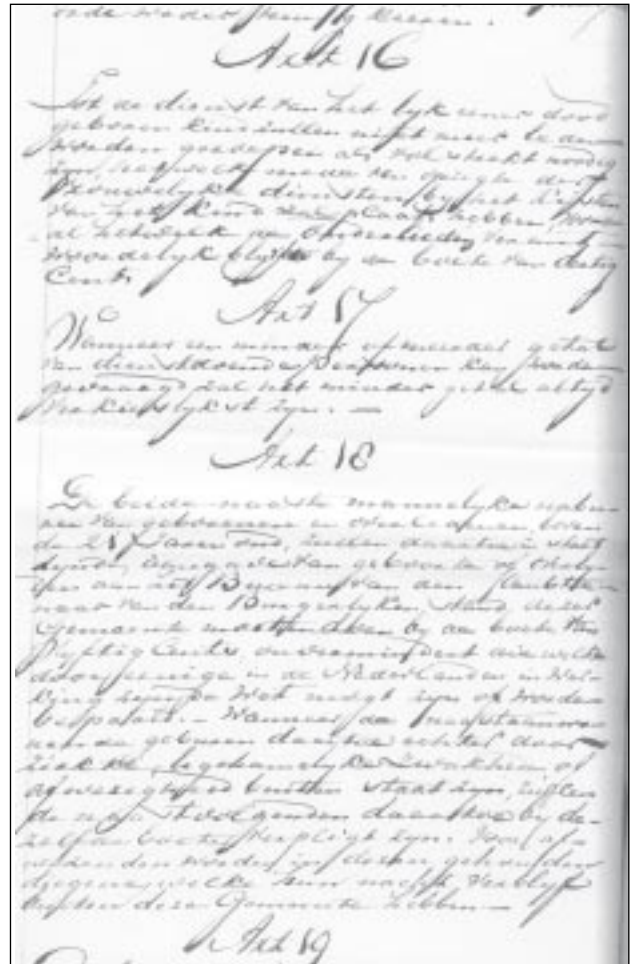 Art 16
Tot de dienst van het lyk eener dood
geboren kind zullen niet meer
worden geroepen als volstrekt noodig
zyn, het welk mede ten opzigte der
Vrouwelyke diensten by het
van het kind zal plaats hebben,
al hetwelk de verant-
woordelyk blyft by de boete van dertig
Cents
Art 17
Wanneer een minder of meerder getal
van dienstdoende Personen kan worden
gevraagd zal het minder getal altyd
verkieslykst zyn. —
Art 18
De beide naaste mannelyke nabu-
ren van geboorenen en overledenen, boven
de Jaren oud, zullen daartoe in staat
zynde, aangave van geboorte of
aan den Ambte-
naar van den Burgerlyken Stand dezer
Gemeente moeten doen by de boete van
Vyftig Cents onvermindert die welke
door eenige in de Nederlanden in Wer-
king zynde Wet mogt zyn of worden
bepaald. – Wanneer de naastaanwo-
nende geburen daartoe echter door
ziekte, ligchamelyke zwakheid of
afwezigheid buiten staat zyn, zullen
de naastvolgenden daartoe by de-
zelfde boete verpligt zyn. Voor af-
wezenden worden in dezen gehouden
diegene, welke hun nacht verblyf
buiten deze Gemeente hebben —
Art 19